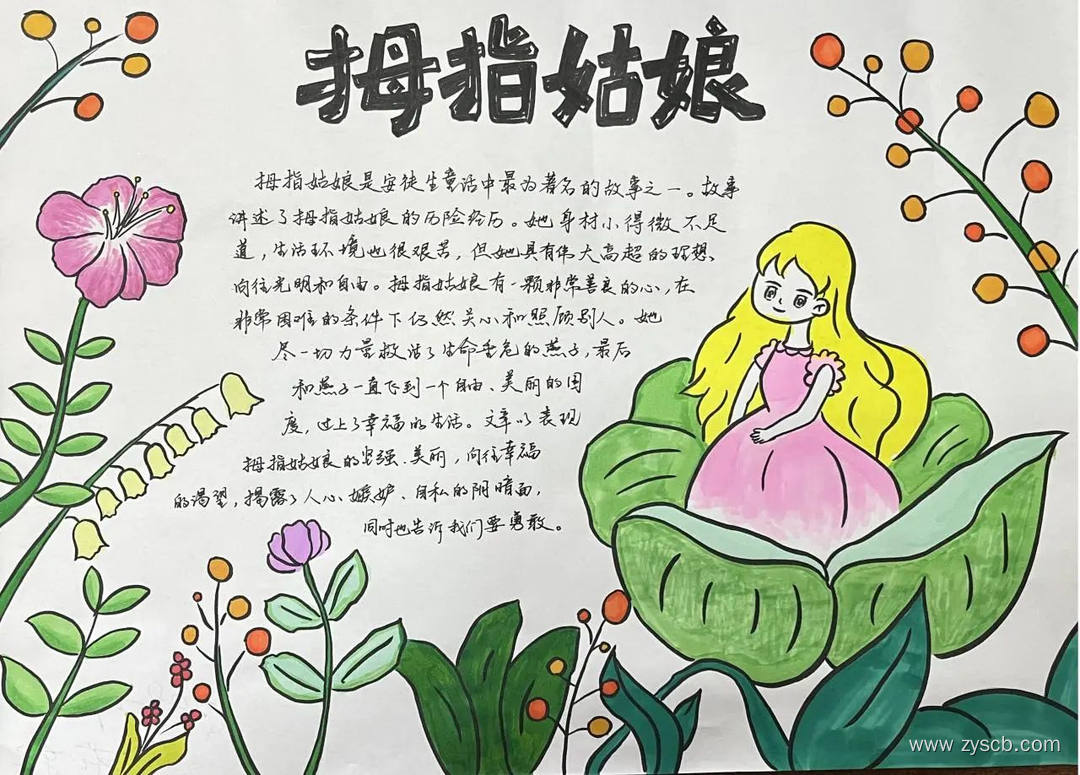 拇指姑娘
拇指姑娘是安徒生童话中最为著名的故事之一。故事
讲述了拇指姑娘的历险经历。她身材小得微不足
道，生活环境也很艰苦，但她具有伟大高超的理想、
向往光明和自由。拇指姑娘有一颗非常善良的心，在
非常困难的条件下仍然关心和照顾别人。她
尽一切力量救活了生命垂危的燕子，最后
和燕子一直飞到一个自由、美丽的国
度，过上了幸福的生活。文章以表现
拇指姑娘的坚强、美丽，向往幸福
的渴望，揭露了人心嫉妒、自私的阴暗面，
同时也告诉我们要勇敢。
www.zyscb.com